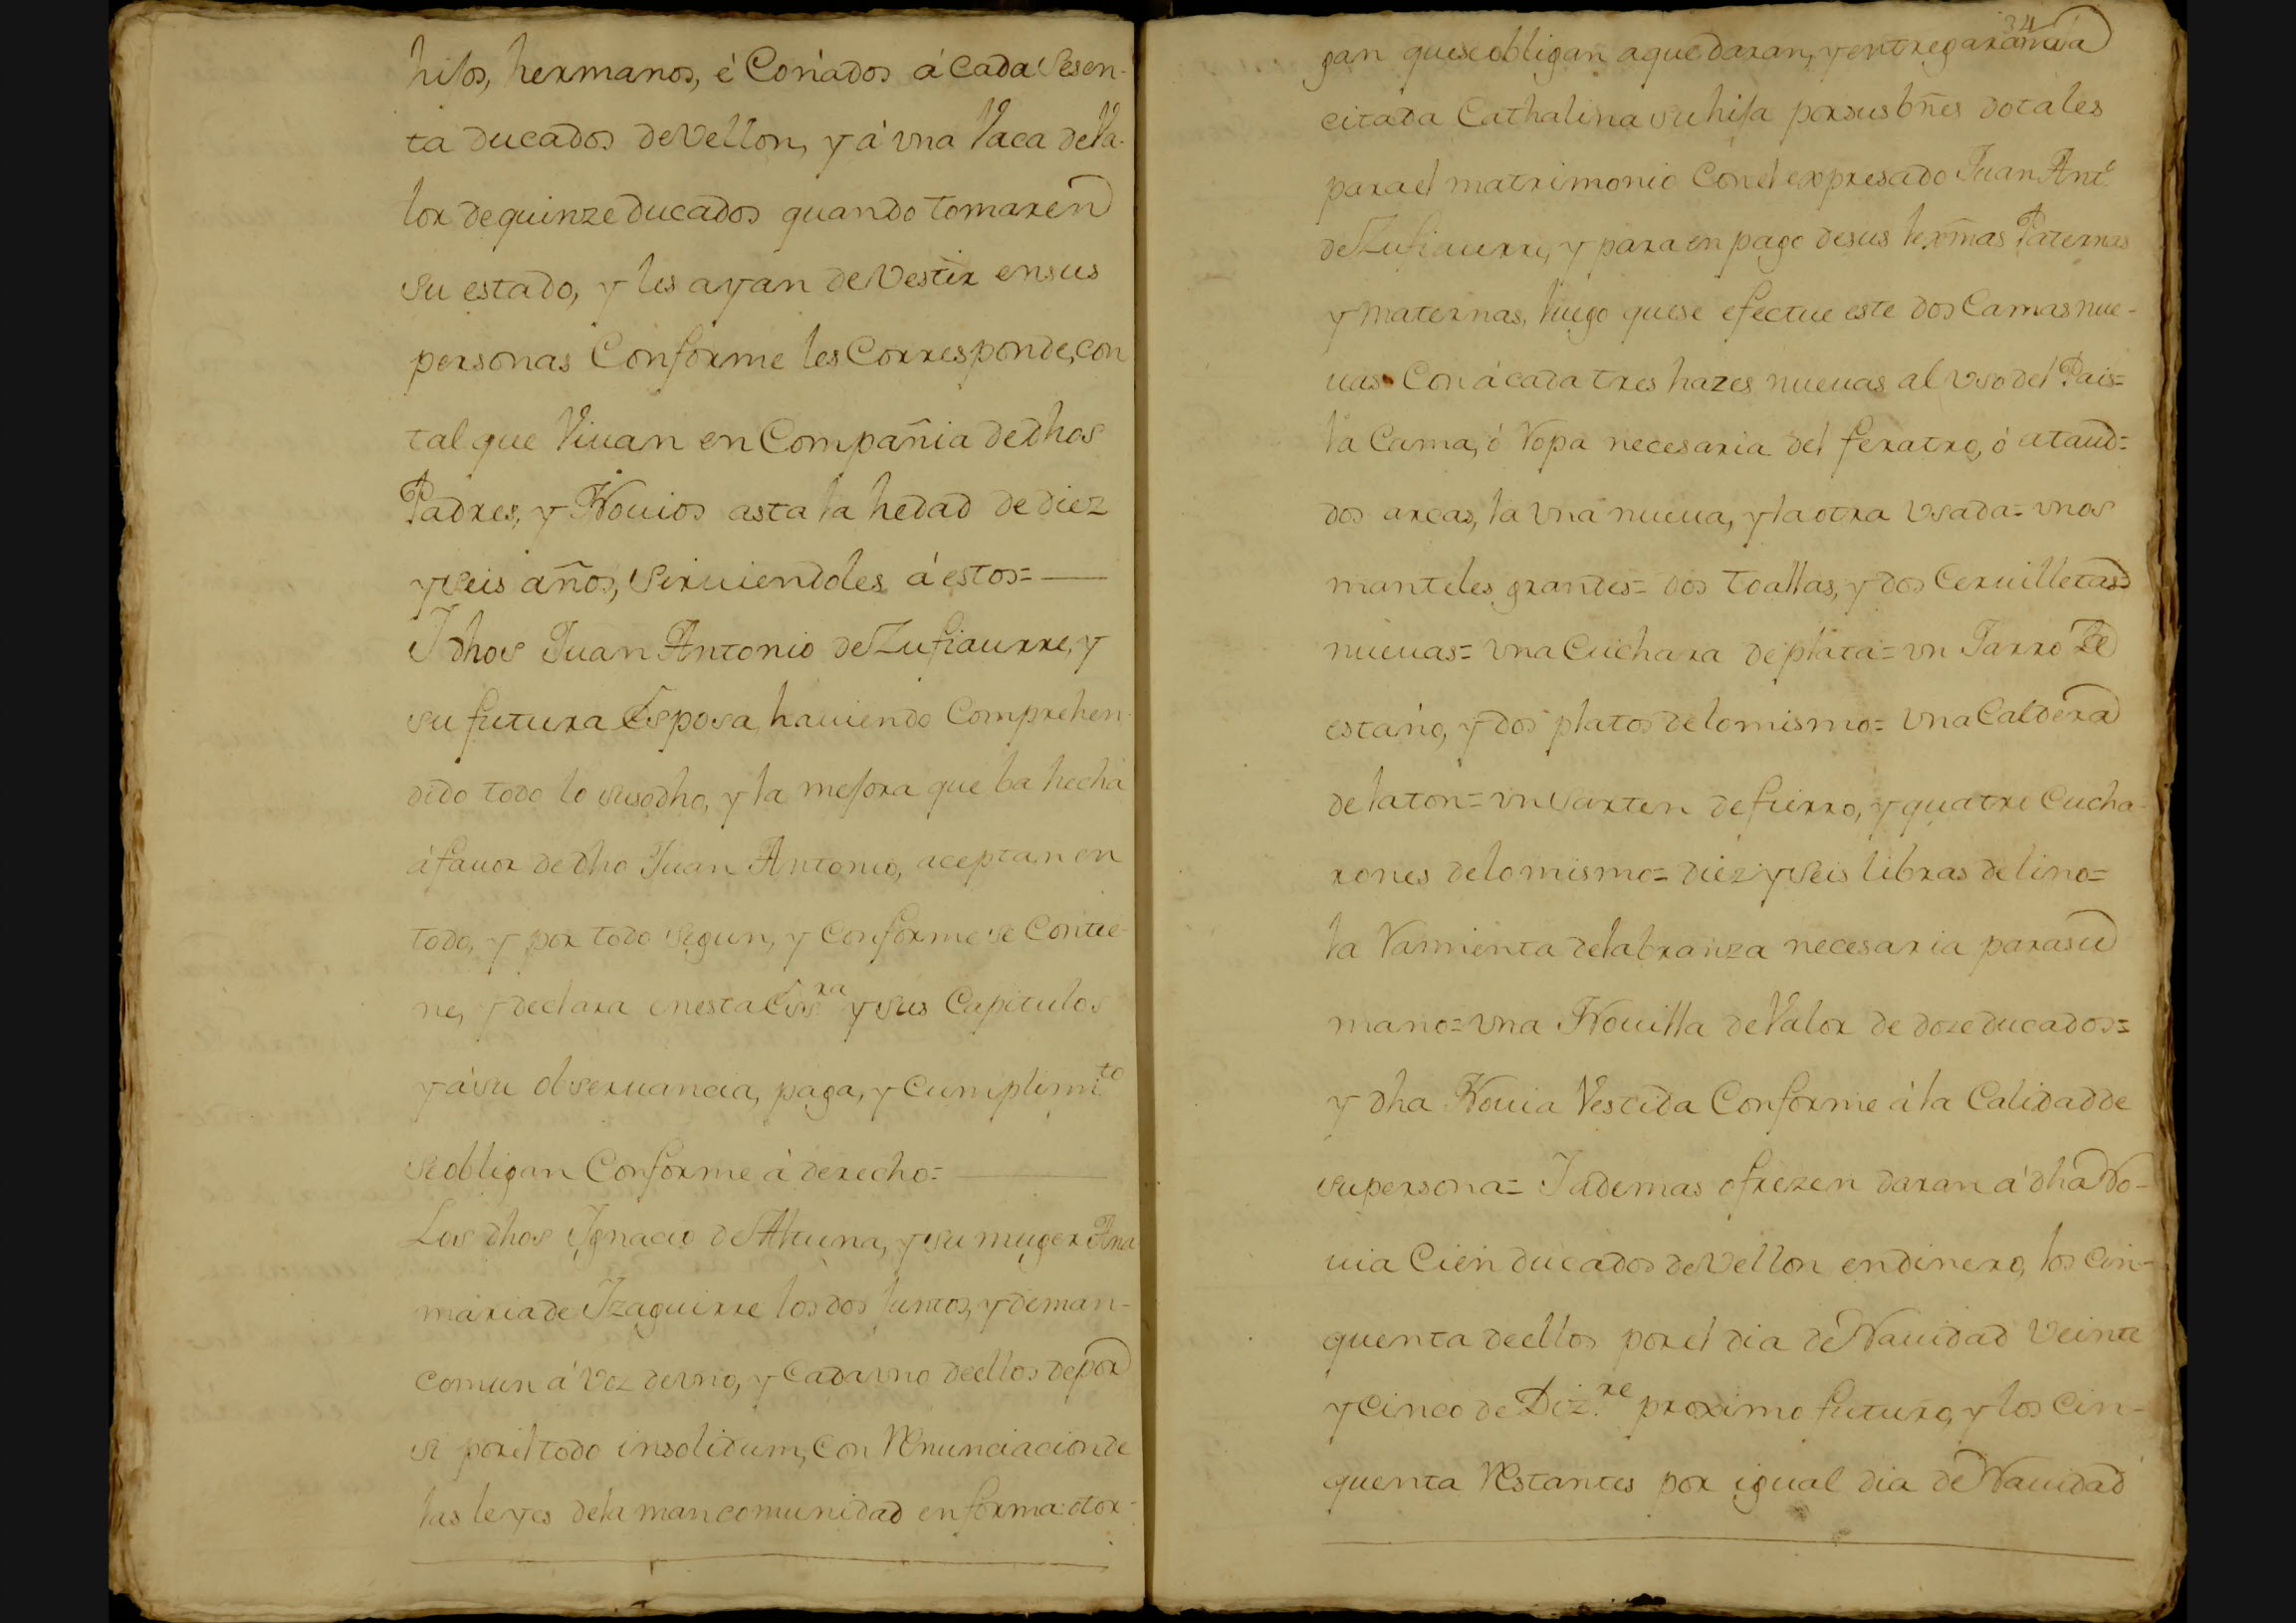 hijos, hermanos, é Coñados á cada Sesen-
ta ducados de Vellon, y á una Vaca de Va-
lor de quinze ducados quando tomaren
su estado, y les ayan de Vestir en sus
personas Conforme les Corresponde, con
tal que Viuan en Compañia de dhos
Padres, y Nouios asta la hedad de diez
y seis años, Siruiendoles á estos=
I dhos Juan Antonio de Zufiaurre, y
su futura Esposa, hauiendo Comprehen-
dido todo lo susodho, y la mejora que ba hecha
á fauor de dho Juan Antonio, aceptan en
todo, y por todo Segun, y Conforme se Contie-
ne, y declara en esta Essra y sus Capitulos
y á su obseruancia, paga, y Cumplimto
se obligan Conforme á derecho=
Los dhos Ignacio de Altuna, y su muger Ana
maria de Izaguirre los dos Juntos, y de man-
comun á Voz de uno, y Cada uno de ellos de por
si por el todo insolidum, Con Renunciacion de
las leyes de la mancomunidad en forma otor-
34
gan que se obligan a que daran, y entregaran a la
citada Cathalina su hija por sus bñes dotales
para el matrimonio Con el expresado Juan Anto
de Zufiaurre, y para en pago de sus lexmas Paternas
y maternas, luego que se efectue este dos Camas nue-
uas Con á cada tres hazes nueuas al Uso del Pais=
la Cama, ó Ropa necesaria del feratro, ó ataud=
dos arcas, la Una nueua, y la otra Usada= unos
manteles grandes= dos toallas, y dos Ceruilletas
nueuas= Una Cuchara de plata= un Jarro de
estaño, y dos platos de lo mismo= Una Caldera
de laton= un sarten de fierro, y quatro Cucha-
rones de lo mismo= diez y seis libras de lino=
la Rarmienta de labranza necesaria para su
mano= Una Nouilla de Valor de doze ducados=
y dha Nouia Vestida Conforme á la Calidad de
su persona= I ademas ofrezen daran á dha No-
uia Cien ducados de Vellon en dinero, los Cin-
quenta de ellos por el dia de Nauidad Veinte
y cinco de Dizre proximo futuro, y los Cin-
quenta Restantes por igual dia de Nauidad